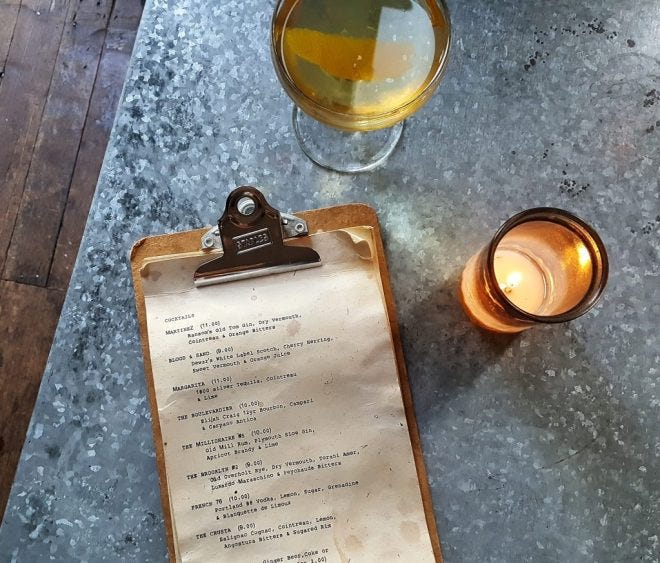 STAPLES
COCKTAILS
MARTINEZ (11.00)
Ransom's Old Tom Gin, Dry Vermouth,
Cointreau & Orange Bitters
BLOOD & SAND. (9.00)
Dewar's White Label Scotch, Cherry Herring,
Sweet Vermouth & Orange Juice
MARGARITA (11.00)
1800 Silver Tequila, Cointreau
& Lime
THE BOULEVARDIER (10.00)
Elijah Craig 12yr Bourbon, Campari
& Carpano Antica
THE MILLIONAIRE #1 (10.00)
Old Mill Rum, Plymouth Sloe Gin,
Apricot Brandy & Lime
THE BROOKLYN #2 (9.00)
Old Overholt Rye, Dry Vermouth, Torani Amer,
Luxardo Maraschino & Peychauds Bitters
FRENCH 76 (10.00)
Portland 88 Vodka, Lemon, Sugar, Grenadine
& Blanquette de Limoux
THE CRUSTA (9.00)
Salignac Cognac, Cointreau, Lemon,
Angostura Bitters & Sugared Rim
Ginger Beer, Coke or
1.00)